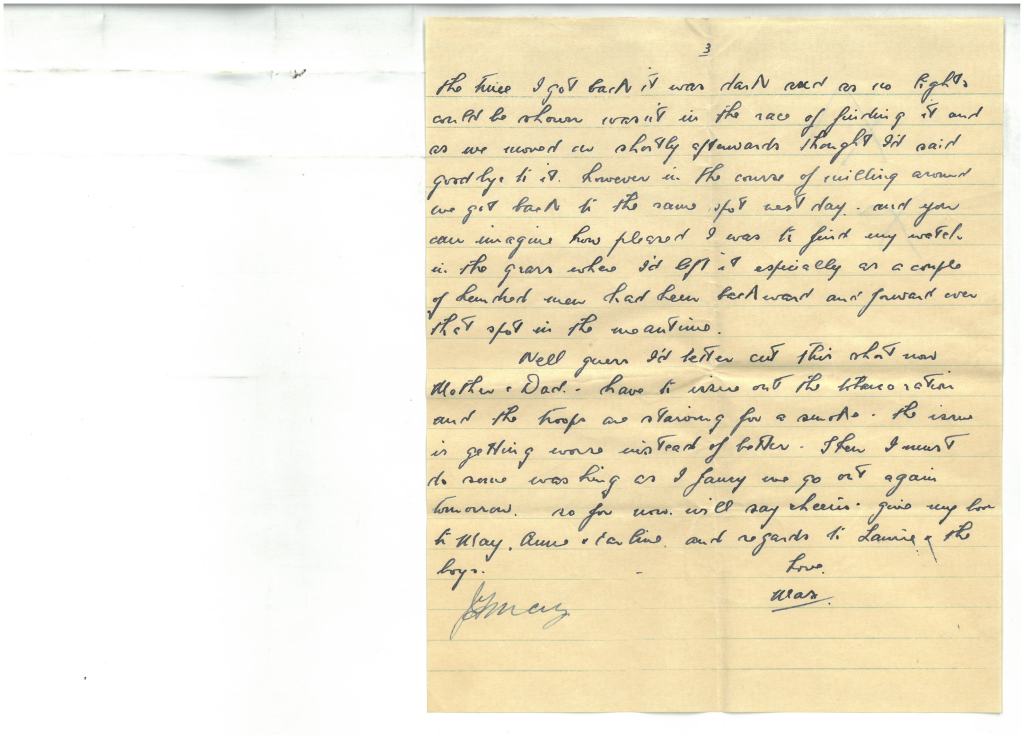 3
the time I got back it was dark and as no lights
could be shown wasn't in the race of finding it and
as we moved on shortly afterwards thought I'd said
goodbye to it. however in the course of milling around
we got back to the same spot next day. and you
can imagine how pleased I was to find my watch
in the grass where I'd left it especially as a couple
of hundred men had been backward and forward over
that spot in the meantime.
Well guess I'd better cut this short now
Mother & Dad. - have to issue out the tobacco ration
and the troops are starving for a smoke. the issue
is getting worse instead of better. Then I must
do some washing as I fancy we go out again
tomorrow. so for now will say cheerio. give my love
to May, Anne & and regards to Laurie & the
boys. Love.
Max.